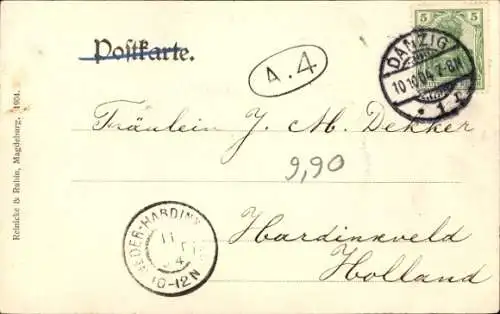 Postkarte.
A.4
5 5
DANZIG
10 10 04 7-8N
* 1 z
Fräulein J. M. Dekker
9,90
Hardinxveld
Holland
NEDER-HARDINX
11
4
10-12N
Reinicke & Rubin, Magdeburg, 1904.